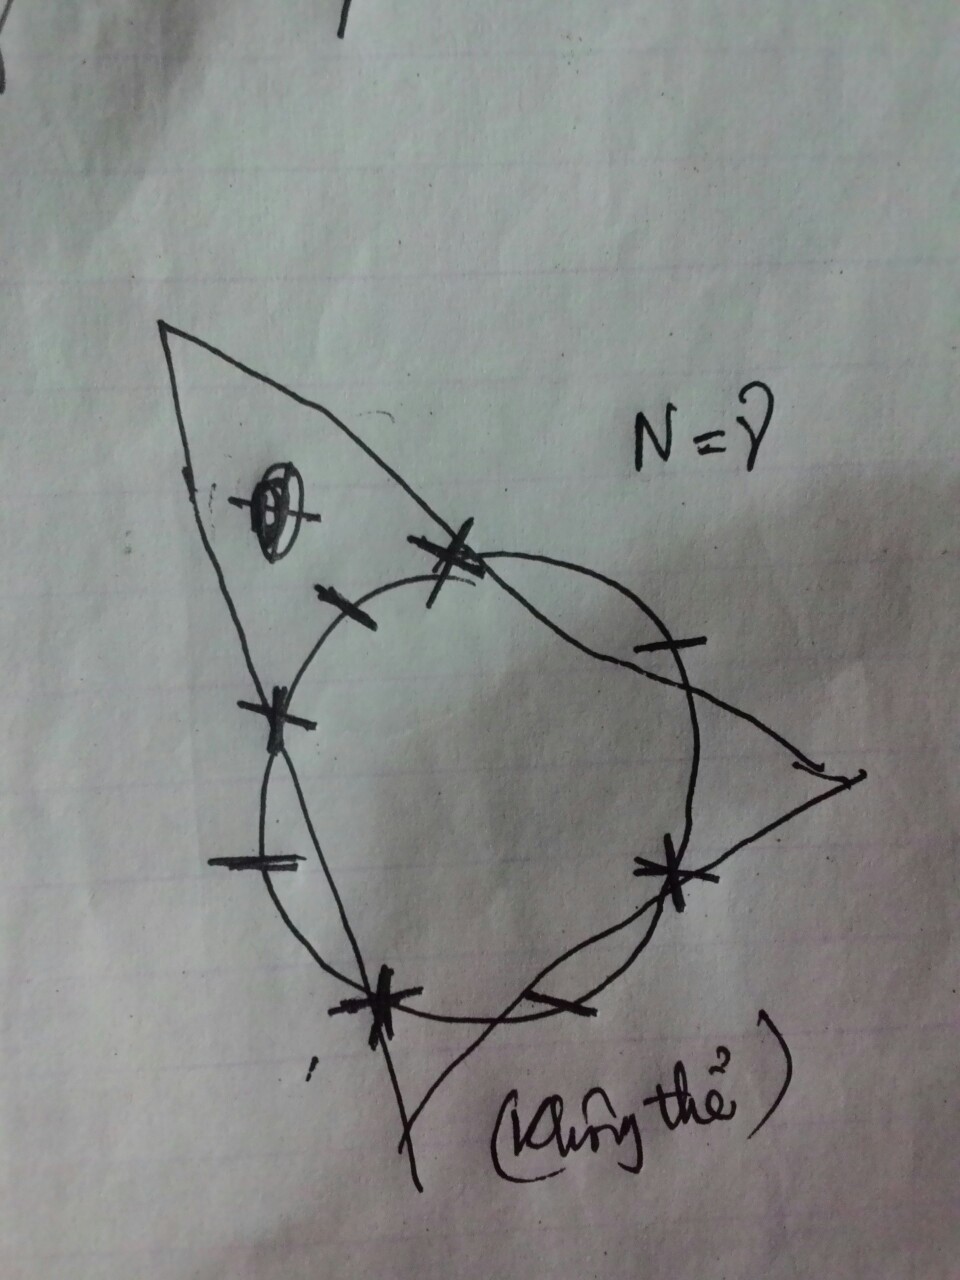 N = ?
(Không thể)